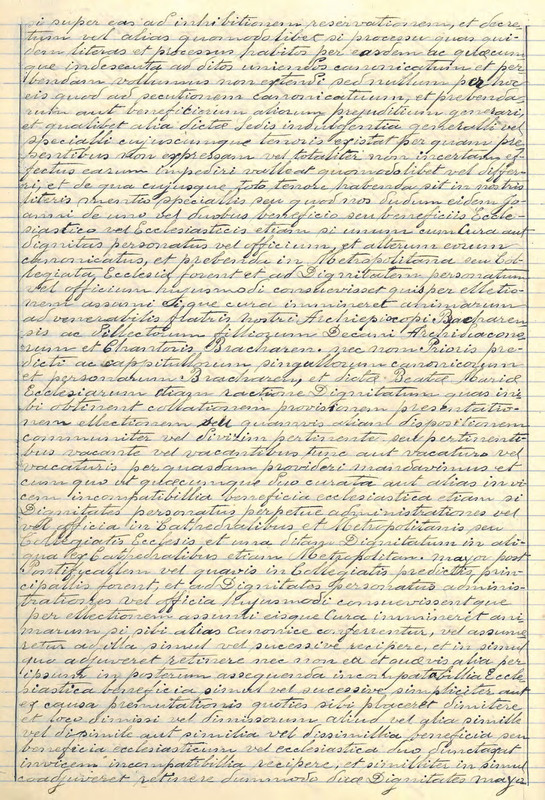 i super eas ad inhibitionem reservationem, et decre
tum vel alias quomodolibet si processu quas qui
dem literas et processus habitos per easdem ac quæcum
que inde secuta ad ditos uniendos canonicatum et per
bendam vollumus non extendi sed nullum per hoc
eis quod ad secutionem canonicatuum, et prebenda
rum aut beneficiorum aliorum prejuditium generari,
et qualibet alia dictæ Sedis indulgentia generalli vel
specialli cujuscumque tenoris existat per quam pre
sentibus non expressam vel totaliter non incertam ef
fectus earum impediri valleat quomodolibet vel differ
ri, et de qua cujusque toto tenore habenda sit in nostris
literis mentio speciallis seu quod nos dudum eidem Jo
anni de uno vel duobus beneficio seu beneficiis Eccle
siastico vel Ecclesiasticis etiam si unum cum Cura aut
dignitas personatus vel officium, et alterum eorum
canonicatus, et prebenda in Metropolitana seu Col
legiata Ecclesia forent et ad Dignitatem personatum
vel officium hujusmodi consuevisset quis per ellectio
nem assumi ei, que cura immineret animarum
ad venerabilis fratris nostri Archiepiscopi Bracharen
sis ac Dillectorum filliorum Decani Archidiacono
rum et Chantoris Bracharen. nec non Prioris pre
dicti ac capitullorum singullorum canonicorum
et personarum Bracharen, et Beatæ Mariæ
Ecclesiarum etiam ractione Dignitatum quas in i
bi obtinent collationem provisionem presentatio
nem ellectionem seu quamvis aliam dispositionem
communiter vel divisim pertinente seu pertinenti
bus vacante vel vacantibus tunc aut vacaturo vel
vacaturis per quasdam provideri mandavimus et
cum quo ut quæcumque duo curata aut alias invi
cem incompatibillia beneficia ecclesiastica etiam si
Dignitates personatus perpetue administrationes vel
vel officia in Cathedralibus et Metropolitanis seu
Collegiatis Ecclesis et una ditam Dignitatum in ali
qua ex Cathedralibus etiam Metropolitan. mayor post
Pontificallem vel quavis in Collegiatis predictis prin
cipallis forent, et ad Dignitates personatus adminis
trationes vel officia hujusmodi consuevissent que
per ellectionem assumi eisque Cura immineret ani
marum si sibi alias canonice conferrentur, vel assume
retur ad illa simul vel successive recipere, et in simul
quo adjuveret retinere nec non ea et quævis alia per
ipsum in posterum assequenda incompatabillia Eccle
siastica beneficia simul vel sucessive simpliciter aut
ex causa premutationis quotias sibi placeret dimitere
et loco dimissi vel dimissorum aliud vel alia simille
vel disimile aut similia vel dissimillia beneficia seu
beneficia ecclesiasticum vel ecclesiastica duo dumtaxat
invicem incompatibillia recipere, et similiter in simul
coadjuveret retinere dummodo duæ Dignitates mayo